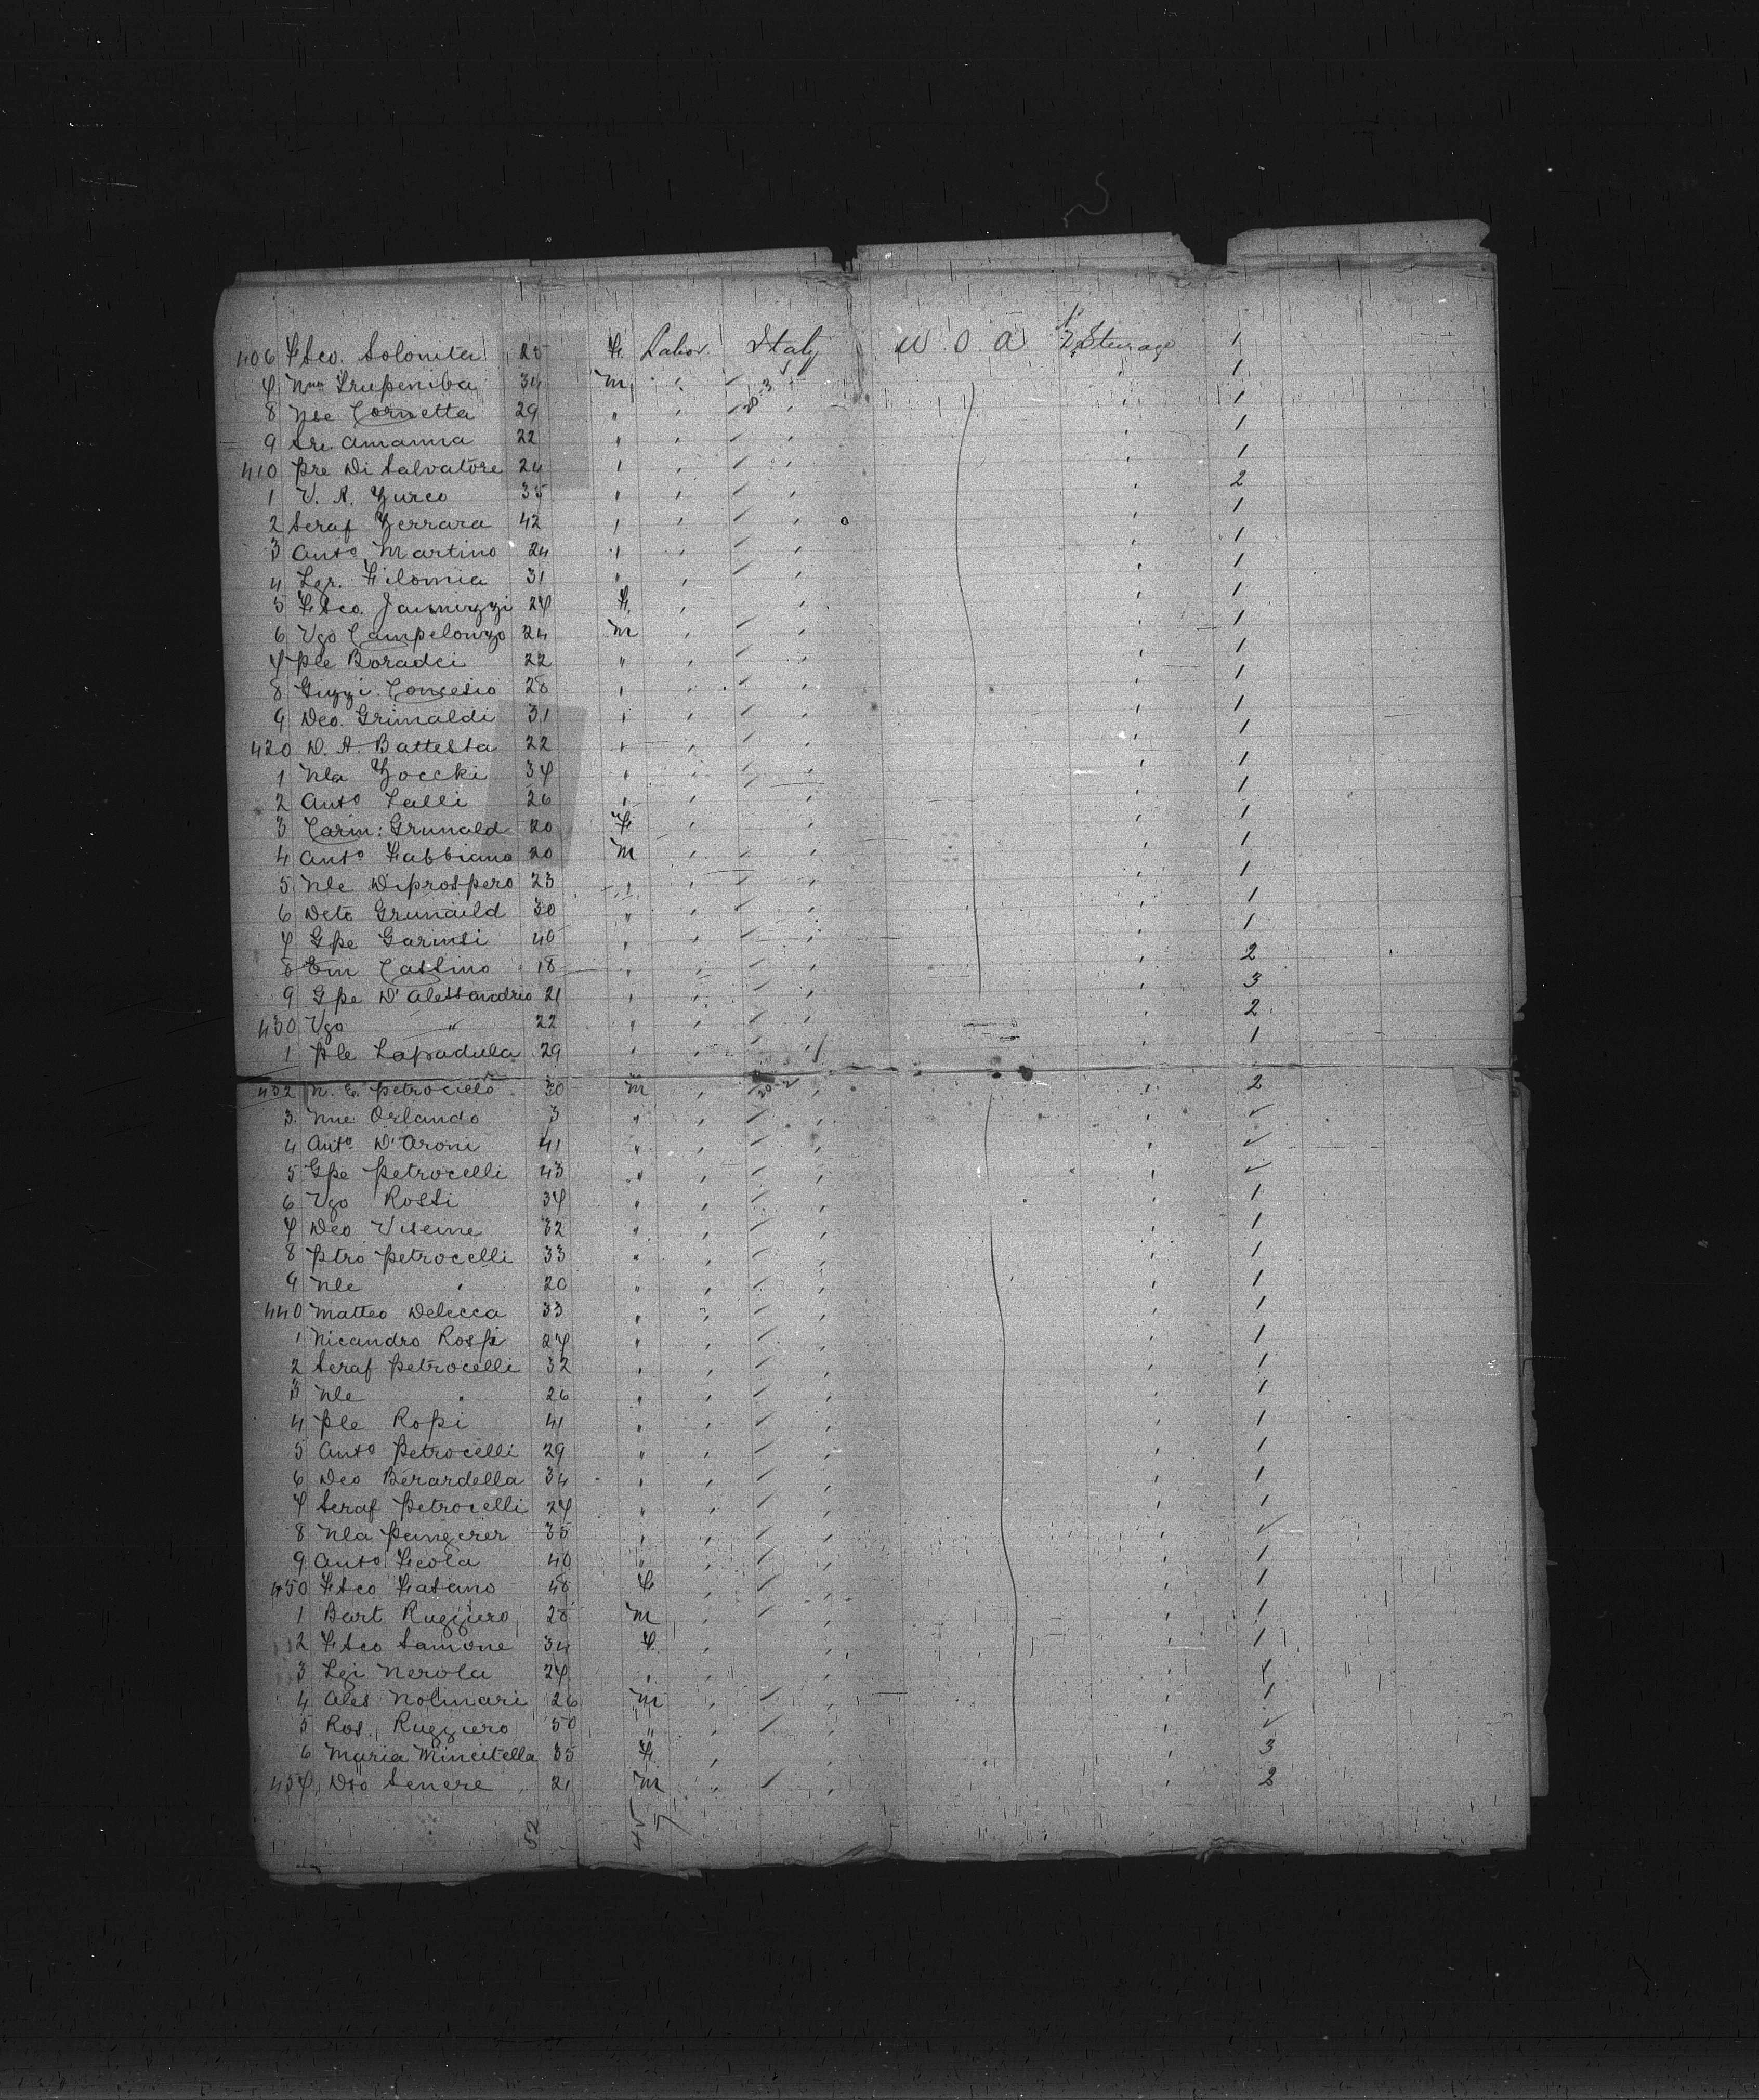 406 Fsco. Solomita 25 F. Labor. Italy U. S. A 2 Sturage 1
7 Nno Trupeniba 34 m " 20-3 " 1
8 Nse Cornetta 29 " " " 1
9 Sre. Amanna 22 " " " 1
410 Pre Di Salvatore 24 " " " 1
1 V. A. Zurco 35 " " " 2
2 Seraf Ferrara 42 " " " 1
3 Anto Martino 24 " " " 1
4 Lgr. Filomia 31 " " " 1
5 Fsco. Jannuzzi 27 F. " " 1
6 Vgo Campelongo 24 m " " 1
7 Ple Boradei 22 " " " 1
8 Guzzi Consesio 28 " " " 1
9 Deo. Grimaldi 31 " " " 1
420 D. A. Battesta 22 " " " 1
1 Nla Zocchi 37 " " " 1
2 Anto Lalli 26 " " " 1
3 Carm: Grunald 20 F " " 1
4 Anto Fabbiano 20 m " " 1
5 Nle Diprospero 23 " " " 1
6 Deto Grunaild 30 " " " 1
7 Gpe Garinsi 40 " " " 1
8 Em Cassino 18 " " " 2
9 Gpe D'Alessandrio 21 " " " 3
430 Vgo " 22 " " " 2
1 Ple Lapadula 29 " " " 1
432 N. E. Petrocielo 30 m " 20-2 " 2
3 Nne Orlando 3 " " " ✓
4 Anto D'Aroni 41 " " " ✓
5 Gpe Petrocelli 43 " " " ✓
6 Vgo Rossi 37 " " " 1
7 Deo Viseine 32 " " " 1
8 Ptro Petrocelli 33 " " " 1
9 Nle " 20 " " " 1
440 Matteo Delecca 33 " " " 1
1 Nicandro Rossi 27 " " " 1
2 Seraf Petrocelli 32 " " " 1
3 Nle " 26 " " " 1
4 Ple Rossi 41 " " " 1
5 Anto Petrocelli 29 " " " 1
6 Deo Berardella 34 " " " 1
7 Seraf Petrocelli 27 " " " 1
8 Nla Pangerer 35 " " " ✓
9 Anto Ficola 40 " " " 1
450 Fsco Fasano 48 F " " 1
1 Bart Ruggiero 28 m " " 1
2 Fsco Samone 34 F. " " 1
3 Lgi Nerola 27 " " " 1
4 Ales Nolinari 26 m " " 1
5 Ros. Ruggiero 50 " " " ✓
6 Maria Mincitella 35 F. " " 3
457 Dto Senere 21 m " " 2
52 45 7